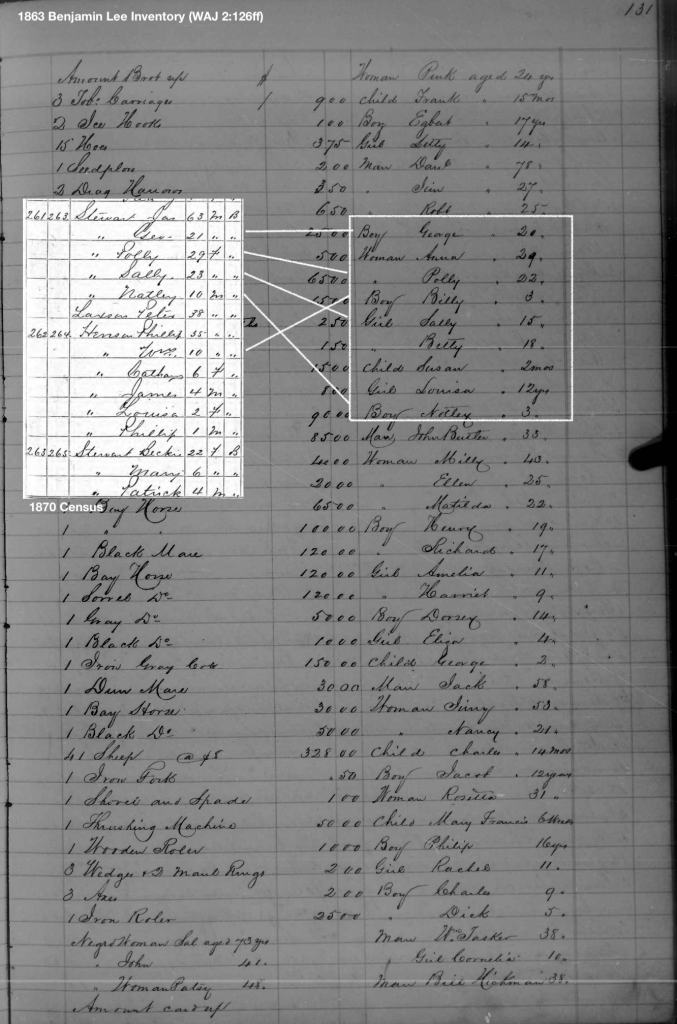 1863 Benjamin Lee Inventory (WAJ 2:126ff)
131
Amount Brot up $ Woman Pink aged 24 yrs
3 Tobo Carriages / 9 00 Child Frank " 15 mos
2 Ice Hooks 1 00 Boy Egbert " 17 yrs
15 Hoes 3 75 Girl Letty " 14 "
1 Seedplow 2 00 Man Danl " 78 "
2 Drag Harrows 3 50 " Jim " 27 "
6 50 " Robt " 25 "
25 00 Boy George " 20 "
5 00 Woman Anna " 29 "
65 00 " Polly " 22 "
15 00 Boy Billy " 3 "
2 50 Girl Sally " 15 "
1 50 " Betty " 18 "
15 00 Child Susan " 2 mos
8 00 Girl Louisa " 12 yrs
90 00 Boy Notley " 3 "
85 00 Man John Butler " 33 "
40 00 Woman Milly " 43 "
20 00 " Ellen " 25 "
Bay Horse 65 00 " Matilda " 22 "
1 " " 100 00 Boy Henry " 19 "
1 Black Mare 120 00 " Richard " 17 "
1 Bay Horse 120 00 Girl Amelia " 11 "
1 Sorrel Do 120 00 " Harriet " 9 "
1 Gray Do 50 00 Boy Dorsey " 14 "
1 Black Do 10 00 Girl Eliza " 4 "
1 Iron Gray Colt 150 00 Child George " 2 "
1 Dun Mare 30 00 Man Jack " 58 "
1 Bay Horse 30 00 Woman Jinny " 53 "
1 Black Do 50 00 " Nancy " 21 "
41 Sheep @ $8 328 00 Child Charles " 14 mos
1 Iron Fork 50 Boy Jacob " 12 years
1 Shovel and Spade 1 00 Woman Rosetta 31 "
1 Thrashing Machine 50 00 Child Mary Francis 6 mos
1 Wooden Roler 10 00 Boy Philip 16 yrs
3 Wedges & 2 Maul Rings 2 00 Girl Rachel 11 "
3 Axes 2 00 Boy Charles 9 "
1 Iron Roler 25 00 " Dick 5 "
Negro Woman Sal aged 73 yrs Man Wm Tasker 38 "
" John 41 " " Girl Cornelia 10 "
" Woman Patsy 48 " Man Bill Hickman 38 "
Amount card up
261 263 Stewart Jas 63 M B
" Geo 21 " "
" Polly 29 F "
" Sally 23 " "
" Natley 10 M "
Laxson Peter 38 " "
262 264 Henson Phillip 35 " "
" Wm 10 " "
" Catha 6 F "
" James 4 M "
" Louisa 2 F "
" Phillip 1 M "
263 265 Stewart Beckie 22 F B
" Mary 6 " "
" Patrick 4 M "
1870 Census